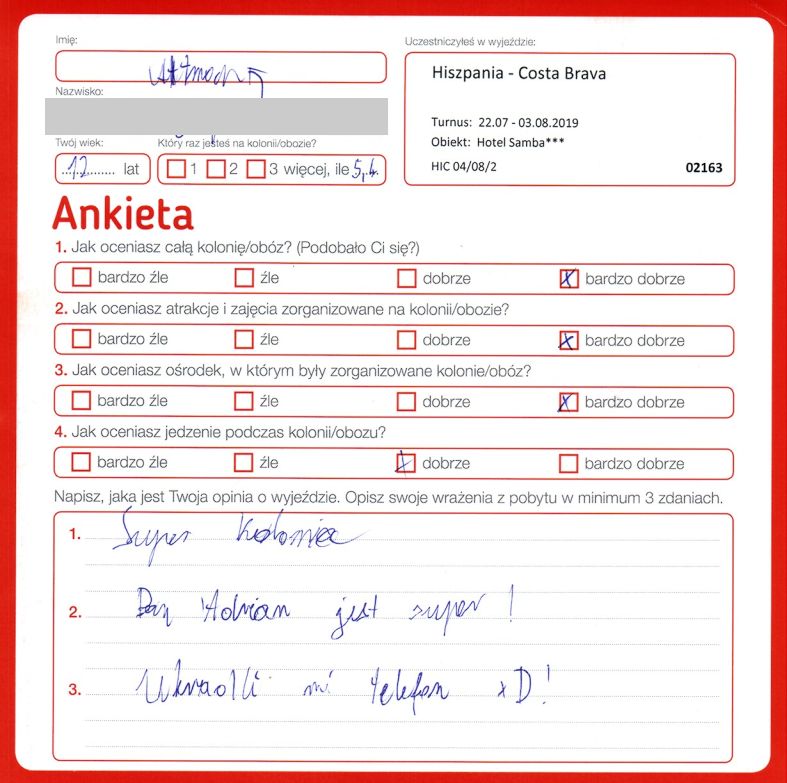 Imię:
Uczestniczyłeś w wyjeździe:
Hiszpania - Costa Brava
Nazwisko:
Turnus: 22.07 - 03.08.2019
Obiekt: Hotel Samba***
HIC 04/08/2 02163
Twój wiek: Który raz jesteś na kolonii/obozie?
12 lat 1 2 3 więcej, ile
Ankieta
1. Jak oceniasz całą kolonię/obóz? (Podobało Ci się?)
bardzo źle źle dobrze bardzo dobrze
2. Jak oceniasz atrakcje i zajęcia zorganizowane na kolonii/obozie?
bardzo źle źle dobrze bardzo dobrze
3. Jak oceniasz ośrodek, w którym były zorganizowane kolonie/obóz?
bardzo źle źle dobrze bardzo dobrze
4. Jak oceniasz jedzenie podczas kolonii/obozu?
bardzo źle źle dobrze bardzo dobrze
Napisz, jaka jest Twoja opinia o wyjeździe. Opisz swoje wrażenia z pobytu w minimum 3 zdaniach.
1. Super
2. Pan Adrian jest super!
3. Ukradli mi telefon xD!